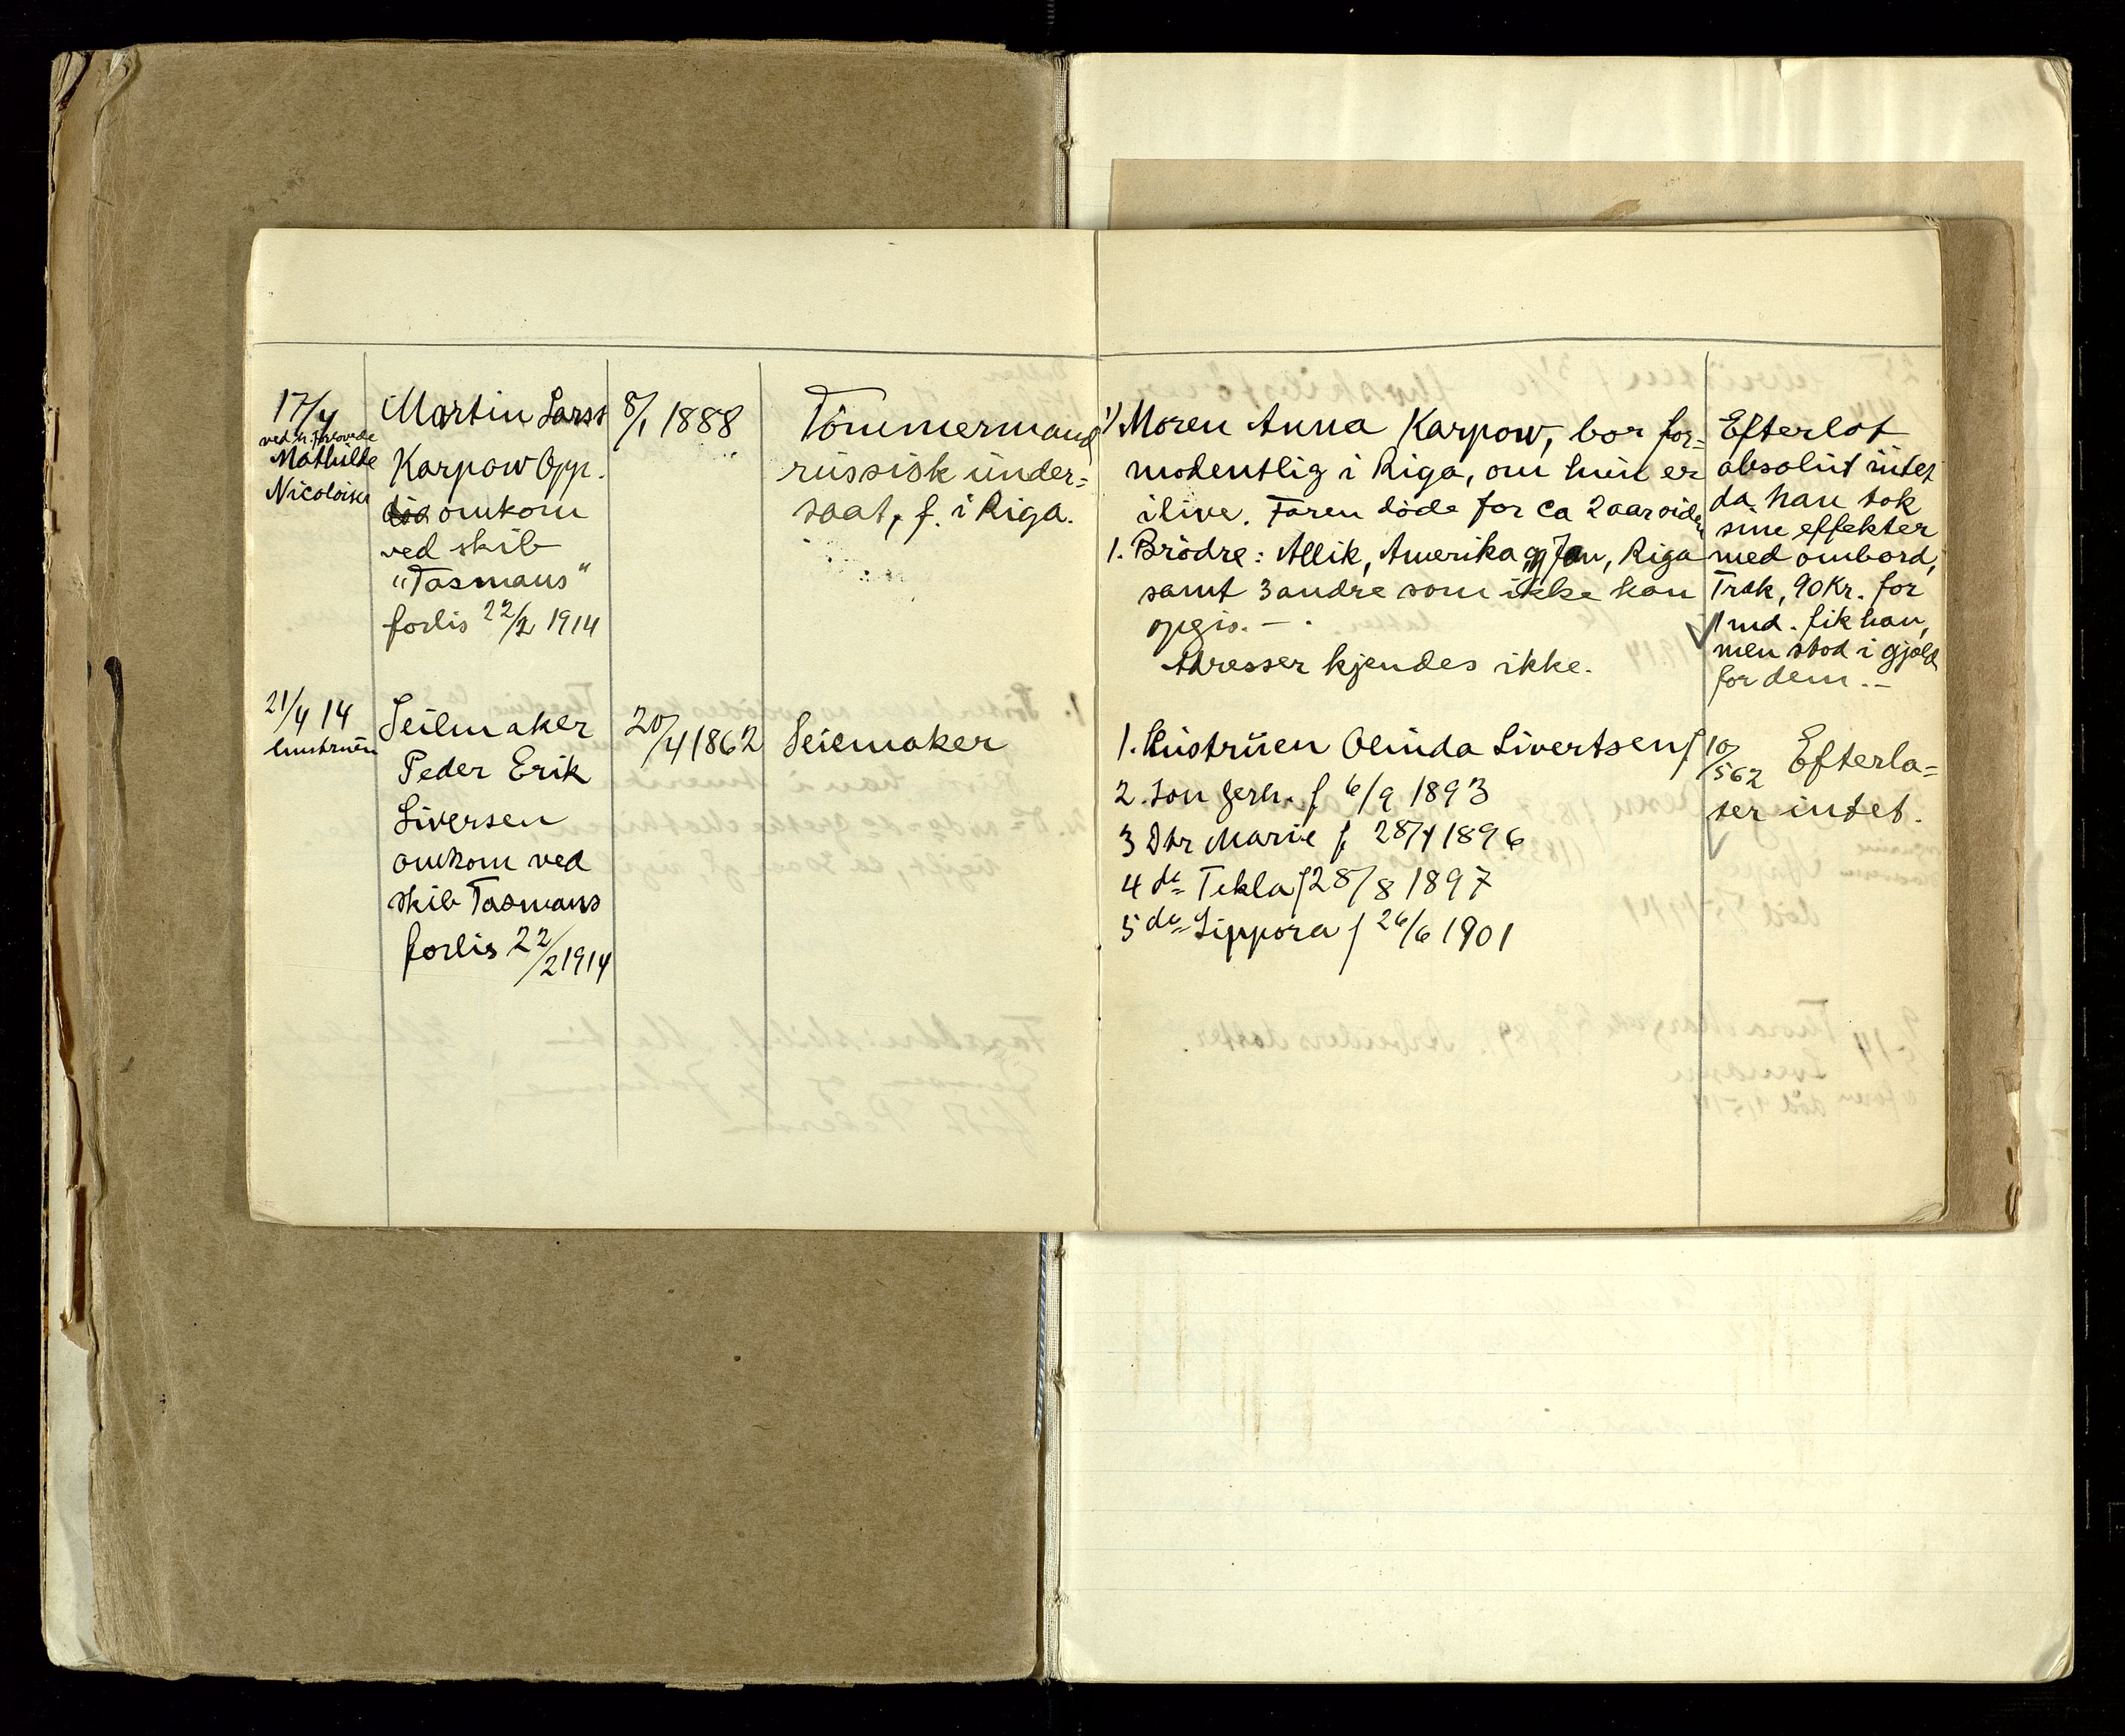 17/4
ved h. forlovede
Mathilde
Nicolaisen
Martin Larss
Karpow Opp.
omkom
ved skib
"Tasmans"
forlis 22/2 1914
8/1 1888
Tömmermand
russisk under=
saat, f. i Riga.
1) Moren Anna Karpow, bor for=
modentlig i Riga, om hun er
ilive. Faren döde for ca 2 aar siden
1. Brödre: Allik, Amerika og Jan, Riga
samt 3 andre som ikke kan
opgis. —
Adresser kjendes ikke.
Efterlot
absolut intet
da han tok
sine effekter
med ombord,
Trak, 90 Kr. for
1 md. fik han,
men stod i gjæld
for dem. —
21/4 14
hustruen
Seilmaker
Peder Erik
Siversen
omkom ved
skib Tasmans
forlis 22/2 1914
20/4 1862
Seilmaker
1. Hustruen Olinda Sivertsen f. 10/5 62
2. Sön Gerh. f 6/9 1893
3 Dtr Marie f. 28/4 1896
4 do Tekla f 28/8 1897
5 do Sippora f 26/6 1901
Efterla=
ter intet.